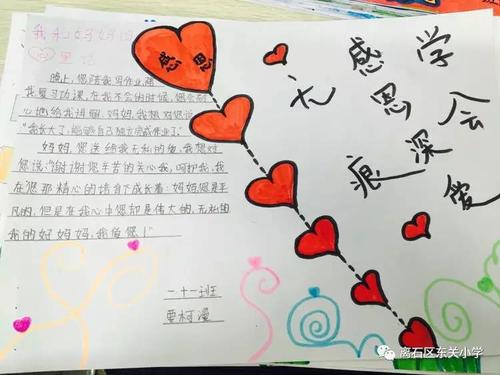 我和妈妈的
心里话
晚上，您陪我写作业，陪
我复习功课，在我不会的时候，您会耐
心地给我讲解。妈妈，我想对您说：
“我长大了，能够自己独立完成作业了。”
妈妈，您送给我无私的爱，我想对
您说：“谢谢您辛苦的关心我，呵护我，我
在您那精心的培育下成长着。妈妈您是平
凡的，但是在我心中您却是伟大的，无私的
我的好妈妈，我爱您！”
一十一班
贾柯漫
感恩
学会
感恩
深爱
无痕
离石区东关小学